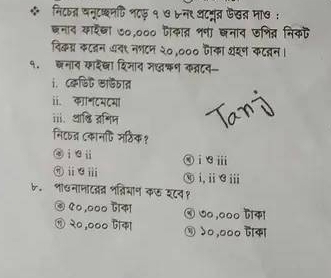 ❖ নিচের অনুচ্ছেদটি পড়ে ৭ ও ৮নং প্রশ্নের উত্তর দাও :
জনাব ফাইজা ৩০,০০০ টাকার পণ্য জনাব তপির নিকট
বিক্রয় করেন এবং নগদে ২০,০০০ টাকা গ্রহণ করেন।
৭. জনাব ফাইজা হিসাব সংরক্ষণ করবে–
i. ক্রেডিট ভাউচার
ii. ক্যাশমেমো
iii. প্রাপ্তি রশিদ
নিচের কোনটি সঠিক?
ⓚ i ও ii
ⓖ i ও iii
ⓖ ii ও iii
ⓖ i, ii ও iii
৮. পাওনাদারের পরিমাণ কত হবে?
ক ৫০,০০০ টাকা
খ ৩০,০০০ টাকা
গ ২০,০০০ টাকা
ঘ ১০,০০০ টাকা
Tanj